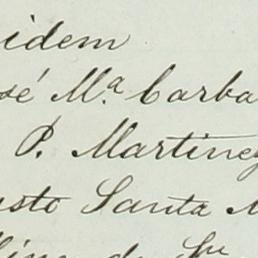 idem
sé M.ª Carba
P. Martinez
usto Santa M